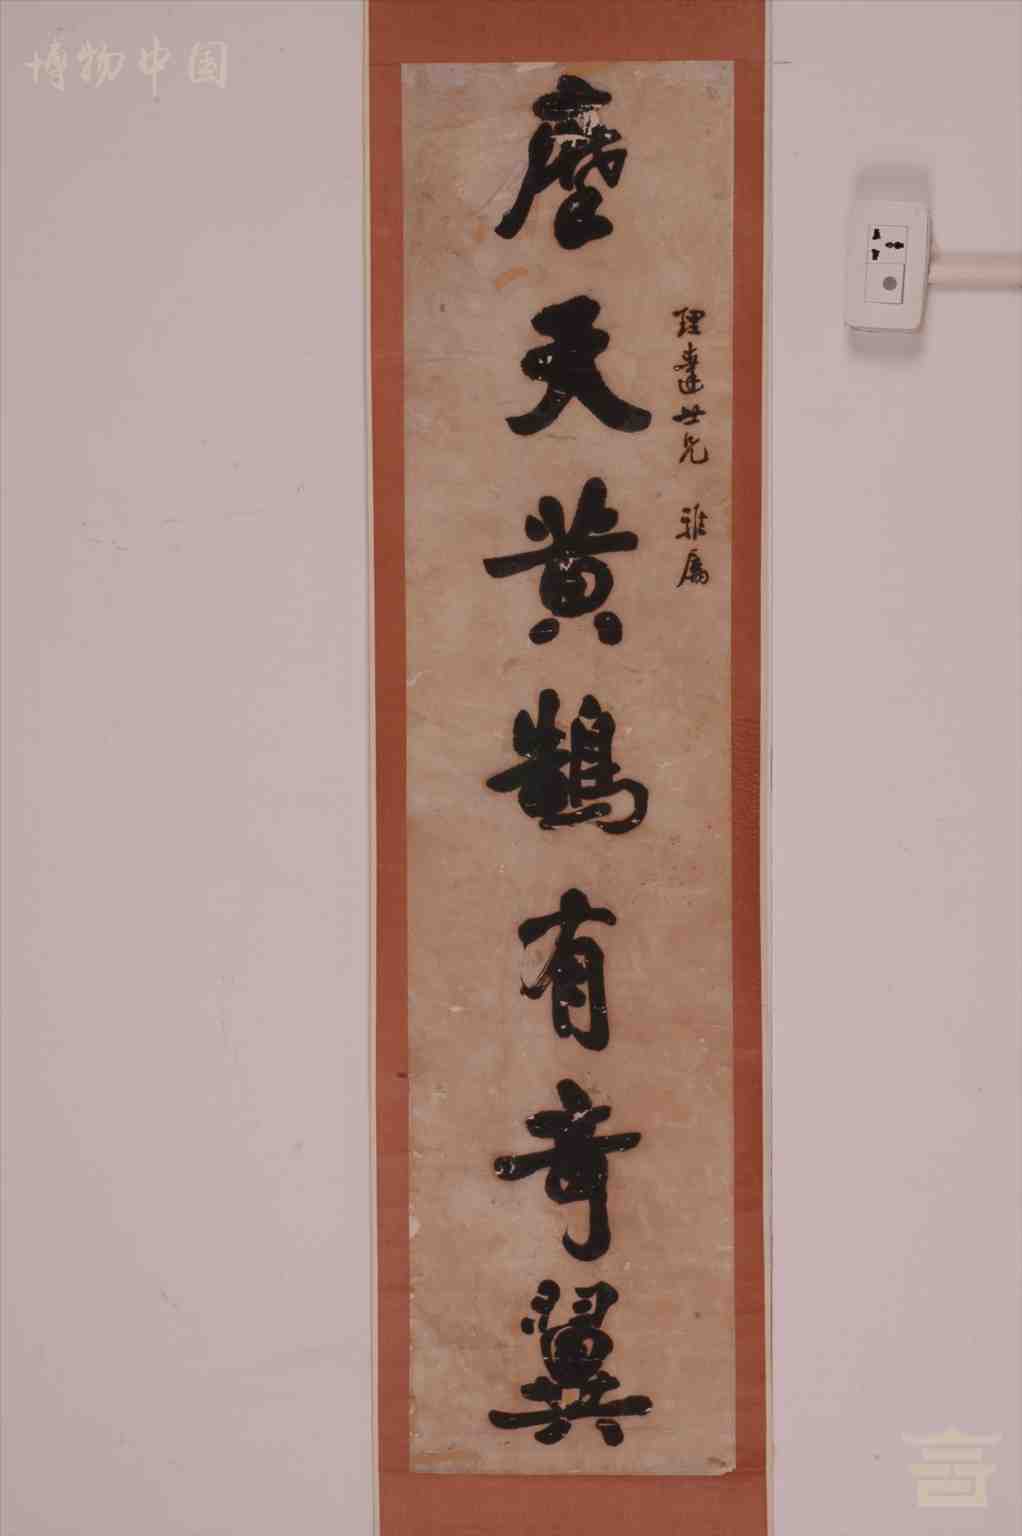 博物中国
理達世兄 雅屬
摩天黄鵠有奇翼